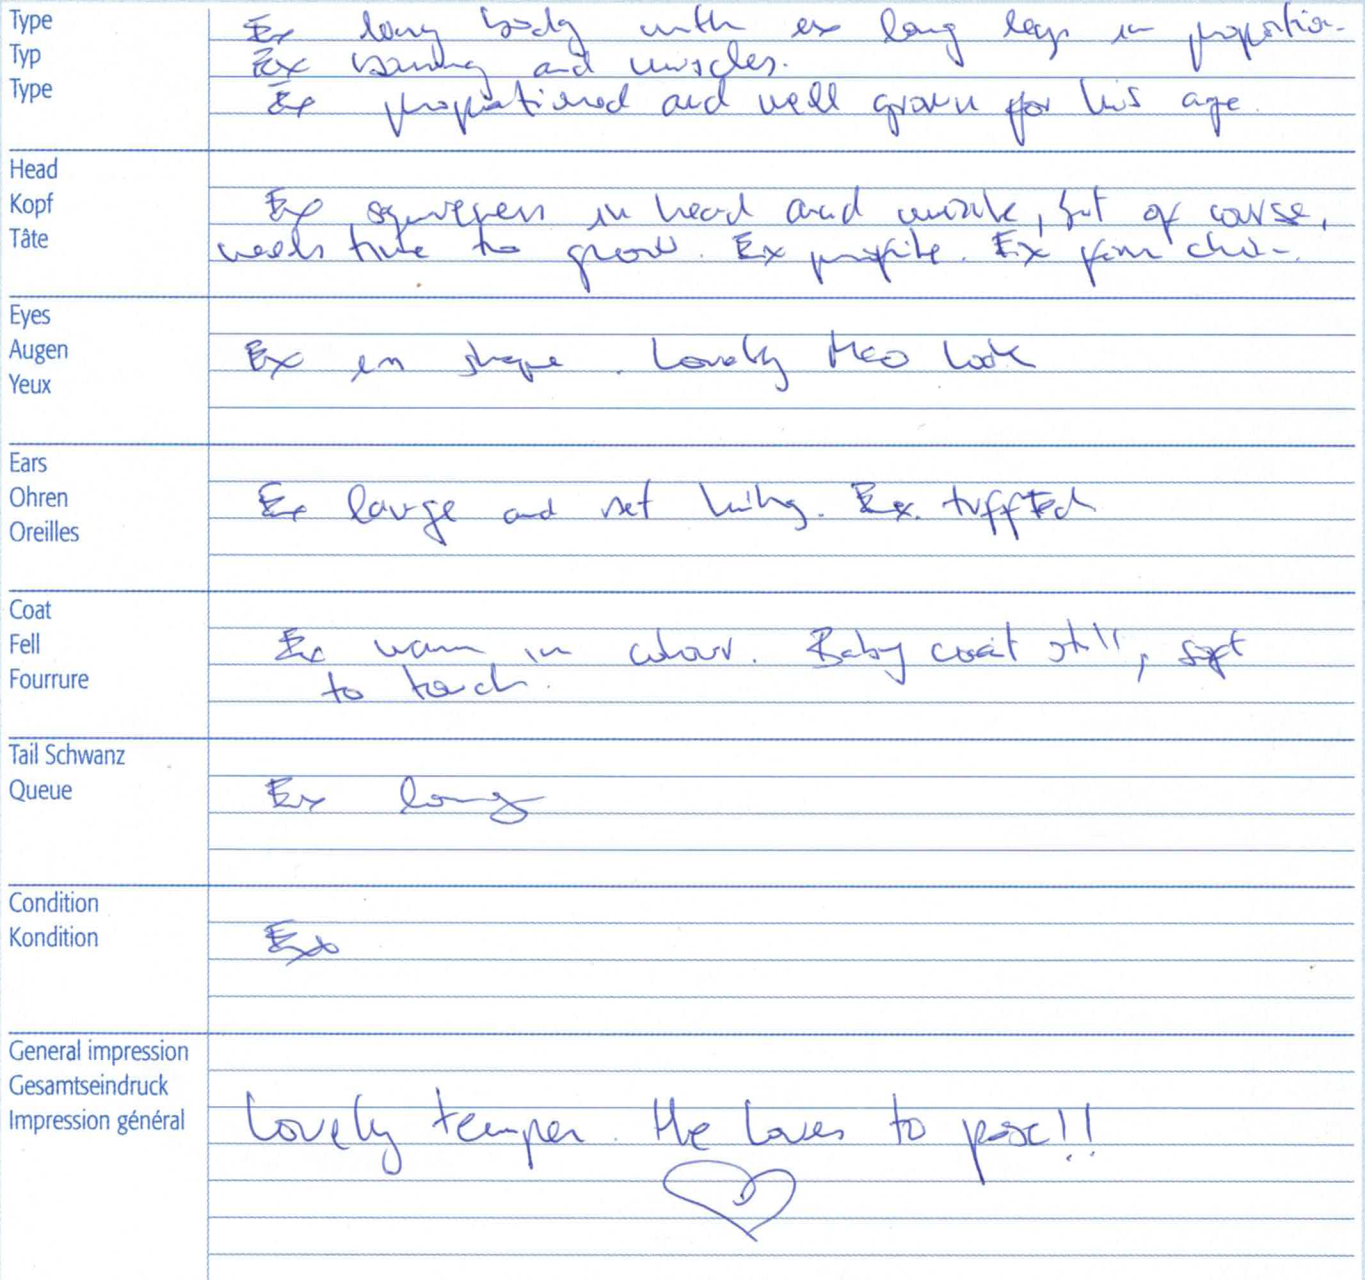 Type
Ex long body with ex long legs in proportion
Typ
Ex boning and muscles.
Type
Ex proportioned and well grown for his age.
Head
Kopf
Ex squareness in head and muzzle, but of course,
Tâte
needs time to grow. Ex profile. Ex firm chin.
Eyes
Augen
Ex in shape. Lovely MCO look
Yeux
Ears
Ohren
Ex large and set. Ex. tuffted
Oreilles
Coat
Fell
Ex warm in colour. Baby coat still, soft
Fourrure
to touch.
Tail Schwanz
Queue
Ex long
Condition
Kondition
Ex
General impression
Gesamtseindruck
Impression général
Lovely temper. He loves to pose!!